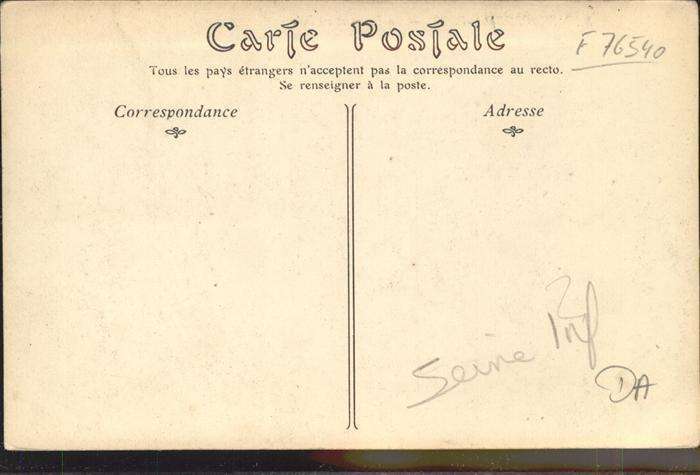 Carte Postale
F 76540
Tous les pays étrangers n'acceptent pas la correspondance au recto.
Se renseigner à la poste.
Correspondance
Adresse
Seine Inf
DA